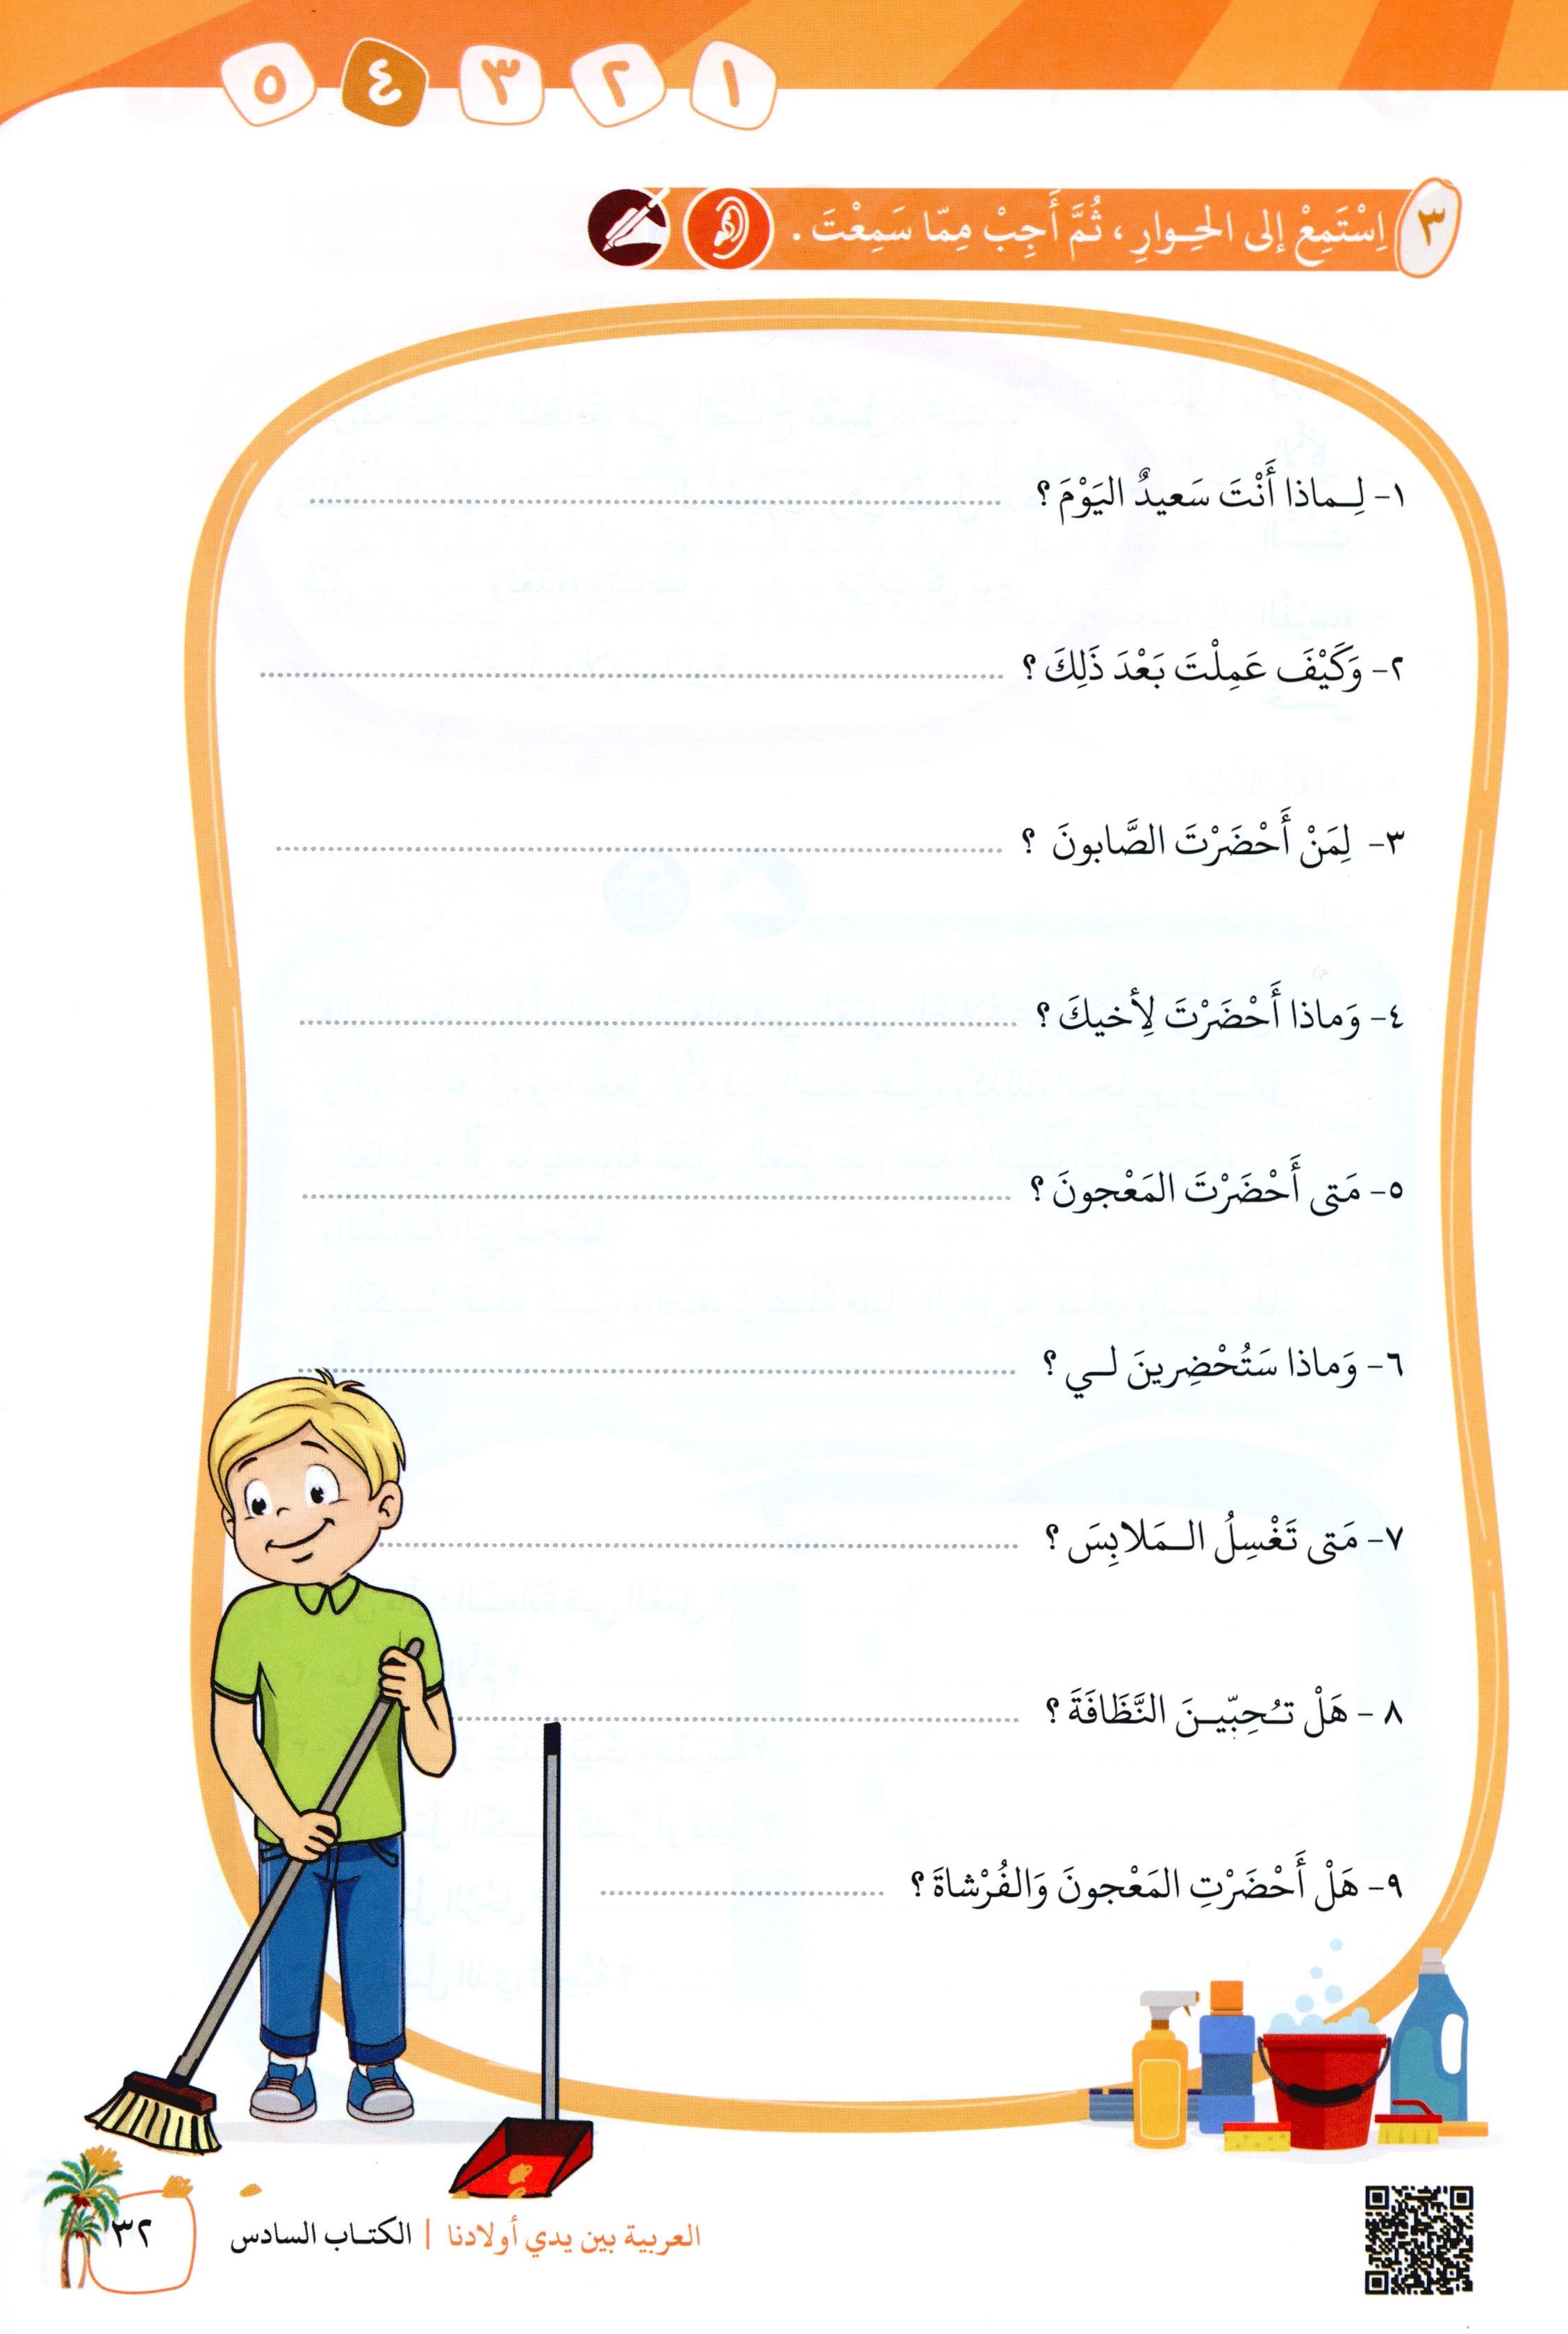 ١ ٢ ٣ ٤ ٥
٣ اِسْتَمِعْ إلى الحِـوارِ ، ثُمَّ أَجِبْ مِمّا سَمِعْتَ .
١- لِــماذا أَنْتَ سَعيدٌ اليَوْمَ ؟
٢- وَكَيْفَ عَمِلْتَ بَعْدَ ذَلِكَ ؟
٣- لِمَنْ أَحْضَرْتَ الصَّابونَ ؟
٤- وَماذا أَحْضَرْتَ لِأَخيكَ ؟
٥- مَتى أَحْضَرْتَ المَعْجونَ ؟
٦- وَماذا سَتُحْضِرينَ لــي ؟
٧- مَتى تَغْسِلُ الــمَلابِسَ ؟
٨ - هَلْ تـُحِبّيـنَ النَّظَافَةَ ؟
٩- هَلْ أَحْضَرْتِ المَعْجونَ وَالفُرْشاةَ ؟
العربية بين يدي أولادنا | الكتـاب السادس
٣٢